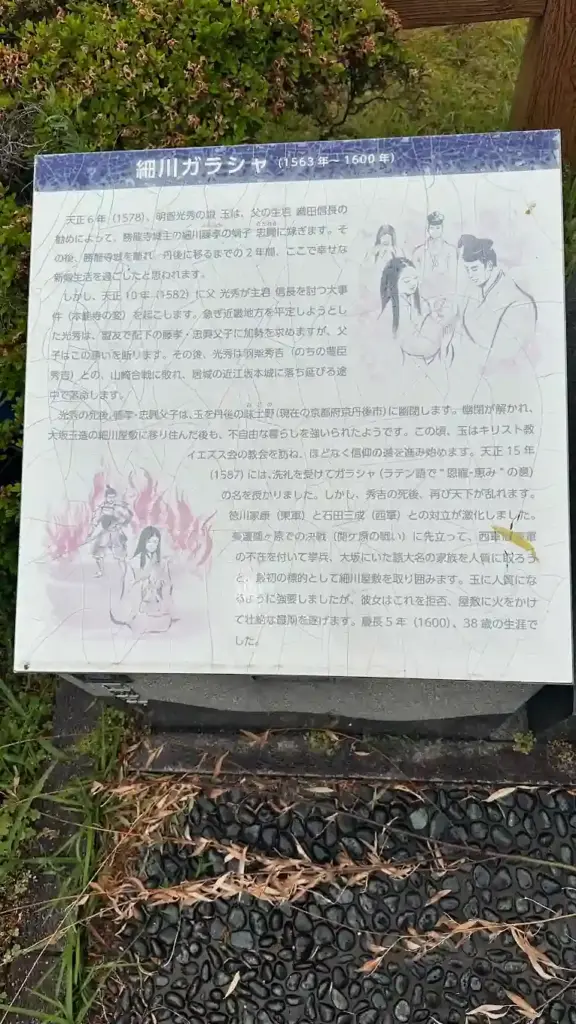 細川ガラシャ（1563年～1600年）
天正6年（1578）、明智光秀の娘 玉は、父の主君 織田信長の
勧めによって、勝龍寺城主の細川藤孝の嫡子 忠興に嫁ぎます。そ
の後、勝龍寺城を離れ、丹後に移るまでの2年間、ここで幸せな
新婚生活を過ごしたと思われます。
しかし、天正10年（1582）に父 光秀が主君 信長を討つ大事
件（本能寺の変）を起こします。急ぎ近畿地方を平定しようとし
た光秀は、盟友で配下の藤孝・忠興父子に加勢を求めますが、父
子はこの誘いを断ります。その後、光秀は羽柴秀吉（のちの豊臣
秀吉）との、山崎合戦に敗れ、居城の近江坂本城に落ち延びる途
中で落命します。
光秀の死後、藤孝・忠興父子は、玉を丹後の味土野（現在の京都府京丹後市）に幽閉します。幽閉が解かれ、
大坂玉造の細川屋敷に移り住んだ後も、不自由な暮らしを強いられたようです。この頃、玉はキリスト教
イエズス会の教会を訪ね、ほどなく信仰の道を進み始めます。天正15年
（1587）には、洗礼を受けてガラシャ（ラテン語で“恩寵・恵み”の意）
の名を授かりました。しかし、秀吉の死後、再び天下が乱れます。
徳川家康（東軍）と石田三成（西軍）との対立が激化しました。
美濃関ヶ原での決戦（関ヶ原の戦い）に先立って、西軍は東軍
の不在を付いて挙兵、大坂にいた諸大名の家族を人質に取ろう
と、最初の標的として細川屋敷を取り囲みます。玉に人質にな
るように強要しましたが、彼女はこれを拒否、屋敷に火をかけ
て壮絶な最期を遂げます。慶長5年（1600）、38歳の生涯で
した。